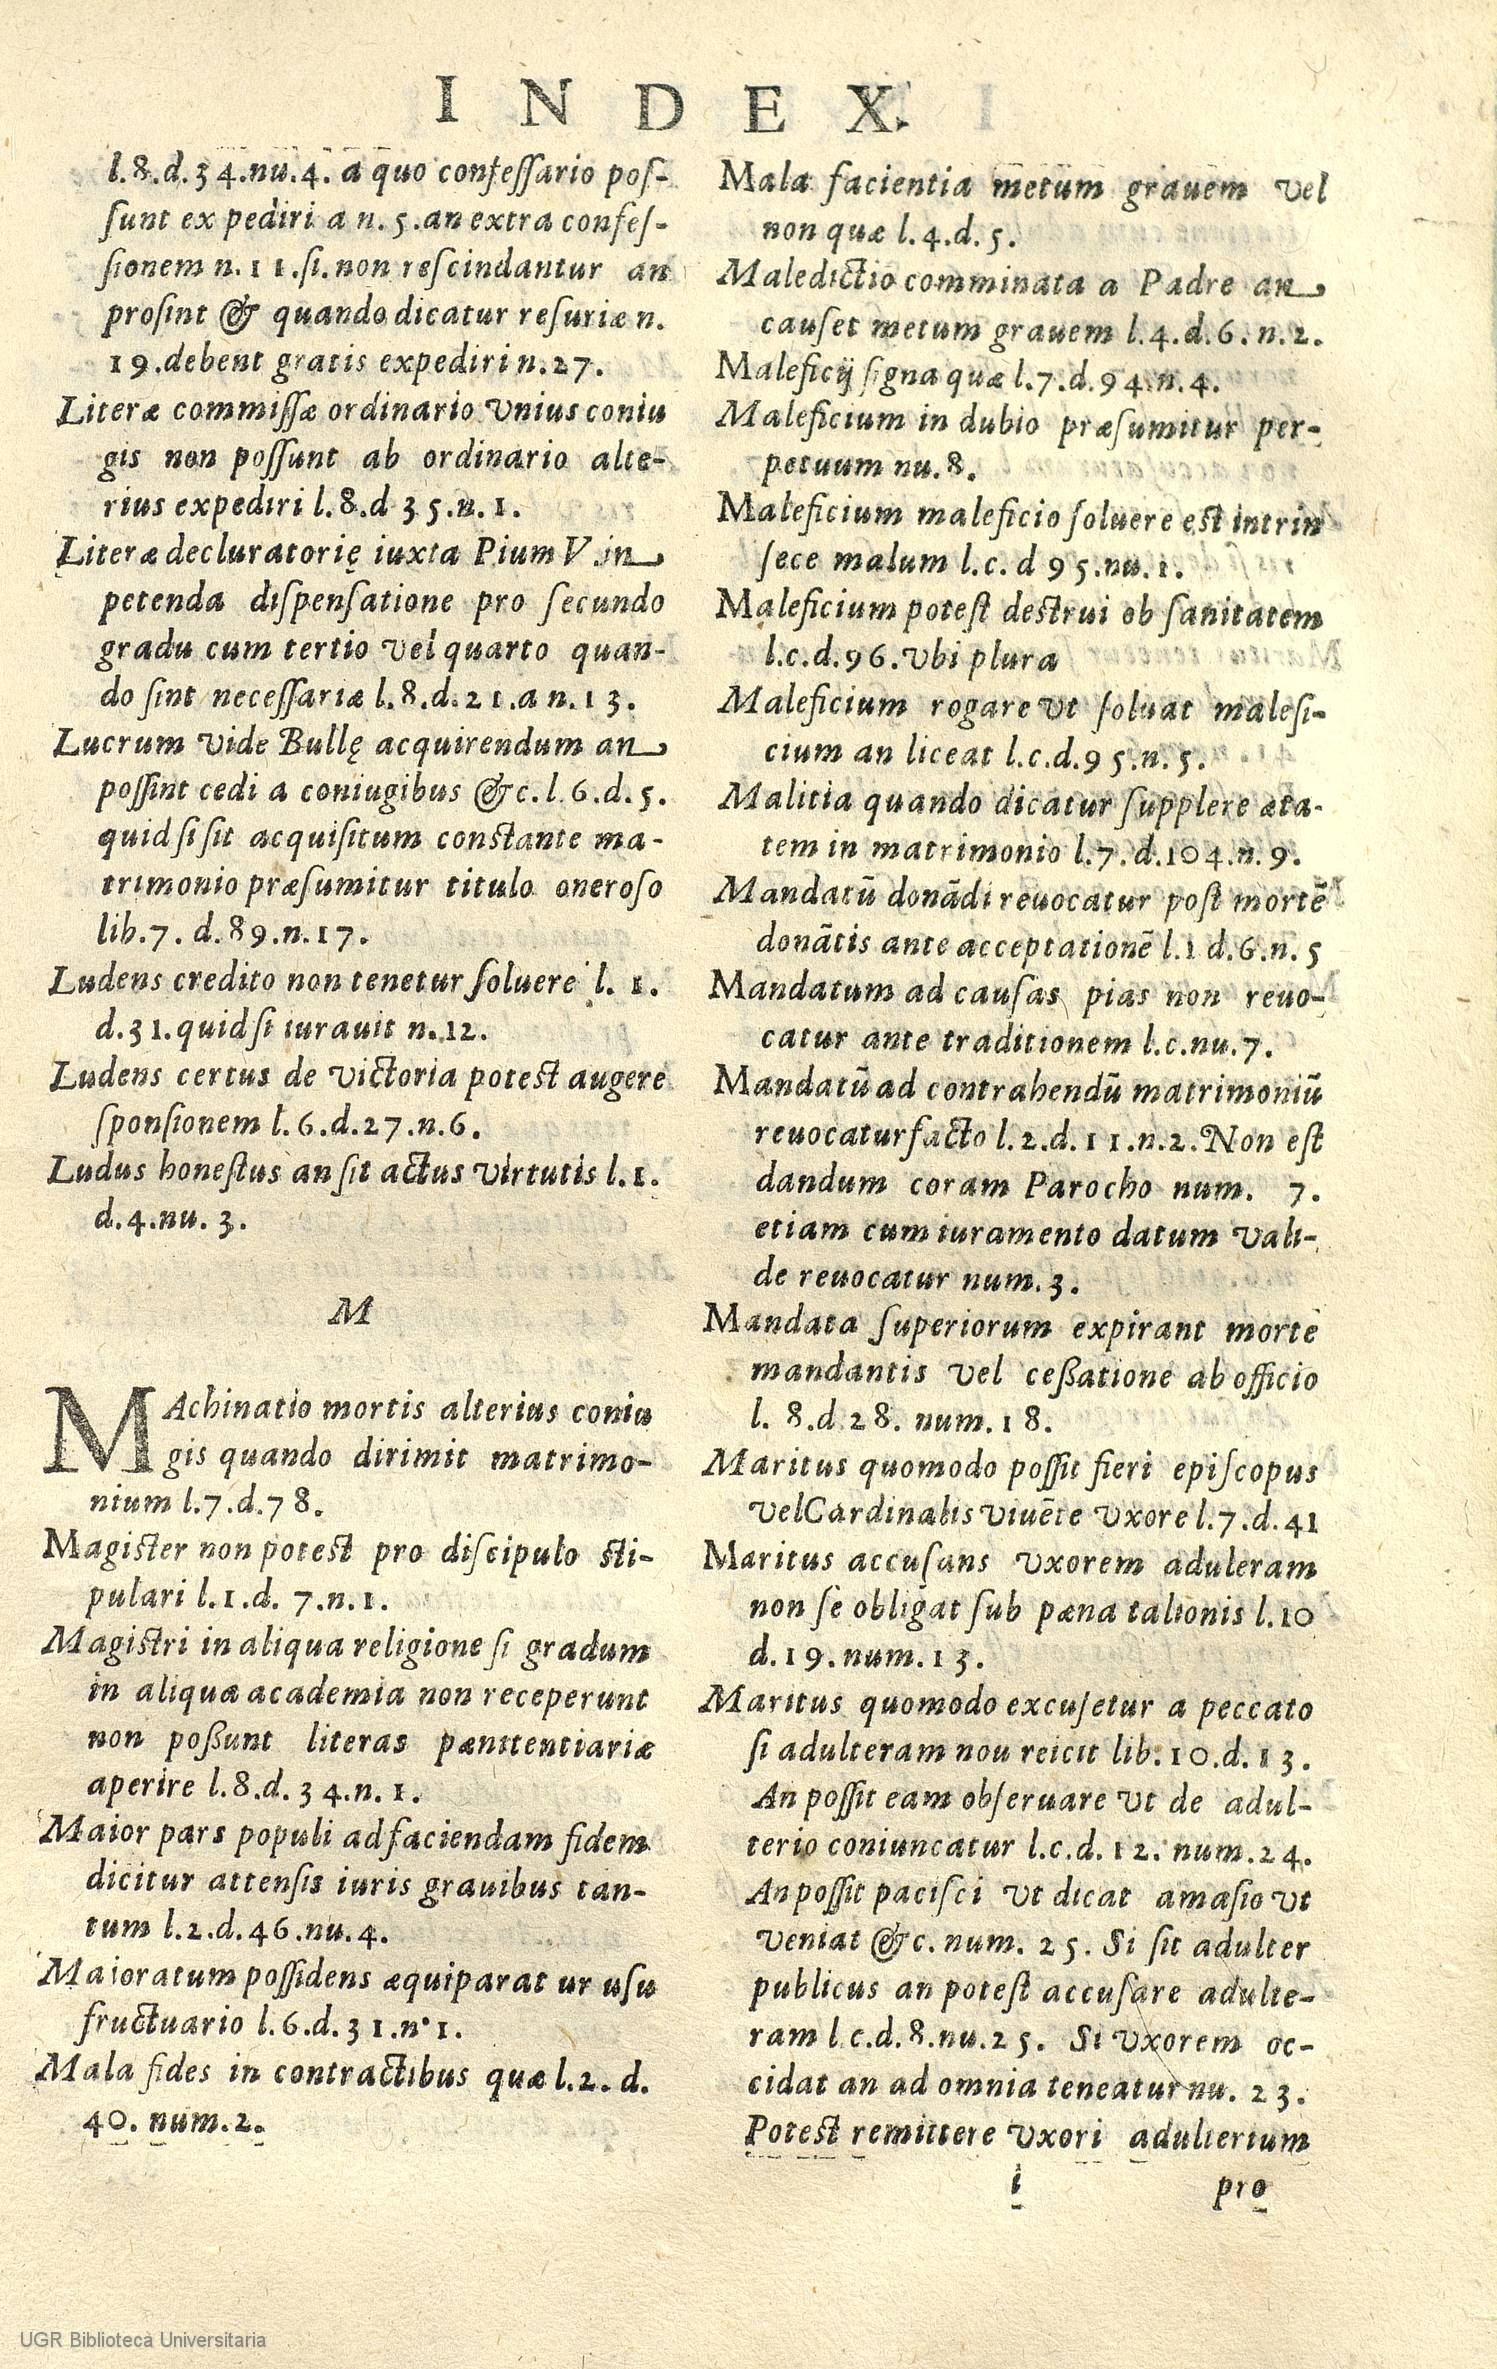 INDEX.
l.8.d.34.nu.4. a quo confeſſario poſ-
ſunt expediri a n.5.an extra confeſ-
ſionem n.11.ſi.non reſcindantur an
proſint & quando dicatur reſuriæ n.
19.debent gratis expediri n.27.
Literæ commiſſæ ordinario vnius coniu
gis non poſſunt ab ordinario alte-
rius expediri l.8.d 35.n.1.
Literæ decluratorię iuxta Pium V.in
petenda diſpenſatione pro ſecundo
gradu cum tertio vel quarto quan-
do ſint neceſſariæ l.8.d.21.a n.13.
Lucrum vide Bullę acquirendum an
poſſint cedi a coniugibus &c.l.6.d.5.
quid ſi ſit acquiſitum conſtante ma-
trimonio præſumitur titulo oneroſo
lib.7. d.89.n.17.
Ludens credito non tenetur ſoluere l. 1.
d.31.quid ſi iurauit n.12.
Ludens certus de victoria poteſt augere
ſponſionem l.6.d.27.n.6.
Ludus honeſtus an ſit actus virtutis l.1.
d.4.nu.3.
M
MAchinatio mortis alterius coniu
gis quando dirimit matrimo-
nium l.7.d.78.
Magiſter non poteſt pro diſcipulo ſti-
pulari l.1.d. 7.n.1.
Magiſtri in aliqua religione ſi gradum
in aliqua academia non receperunt
non poßunt literas pænitentiariæ
aperire l.8.d.34.n.1.
Maior pars populi ad faciendam fidem
dicitur attenſis iuris grauibus tan-
tum l.2.d.46.nu.4.
Maioratum poſſidens æquiparat ur uſu
fructuario l.6.d.31.n.1.
Mala fides in contractibus quæ l.2. d.
40. num.2.
Mala facientia metum grauem vel
non quæ l.4.d.5.
Maledictio comminata a Padre an
cauſet metum grauem l.4.d.6.n.2.
Maleficij ſigna quæ l.7.d.94.n.4.
Maleficium in dubio præſumitur per-
petuum nu.8.
Maleficium maleficio ſoluere eſt intrin
ſece malum l.c. d 95.nu.1.
Maleficium poteſt deſtrui ob ſanitatem
l.c.d.96.vbi plura
Maleficium rogare vt ſoluat maleſi-
cium an liceat l.c.d.95.n.5.
Malitia quando dicatur ſupplere æta-
tem in matrimonio l.7.d.104.n.9.
Mandatū donādi reuocatur poſt mortē
donātis ante acceptationē l.1 d.6.n.5
Mandatum ad cauſas pias non reuo-
catur ante traditionem l.c.nu.7.
Mandatū ad contrahendū matrimoniū
reuocatur facto l.2.d.11.n.2.Non eſt
dandum coram Parocho num. 7.
etiam cum iuramento datum vali-
de reuocatur num.3.
Mandata ſuperiorum expirant morte
mandantis vel ceßatione ab officio
l. 8.d.28. num.18.
Maritus quomodo poſſit fieri epiſcopus
vel Cardinalis viuēte vxore l.7.d.41
Maritus accuſans vxorem aduleram
non ſe obligat ſub pæna talionis l.10
d.19.num.13.
Maritus quomodo excuſetur a peccato
ſi adulteram nou reicit lib.10.d.13.
An poſſit eam obſeruare vt de adul-
terio coniuncatur l.c.d.12. num.24.
An poſſit paciſci vt dicat amaſio vt
veniat &c.num. 25. Si ſit adulter
publicus an poteſt accuſare adulte-
ram l c.d.8.nu.25. Si vxorem oc-
cidat an ad omnia teneatur nu. 23.
Poteſt remittere vxori adulterium
i
pro
UGR Biblioteca Universitaria